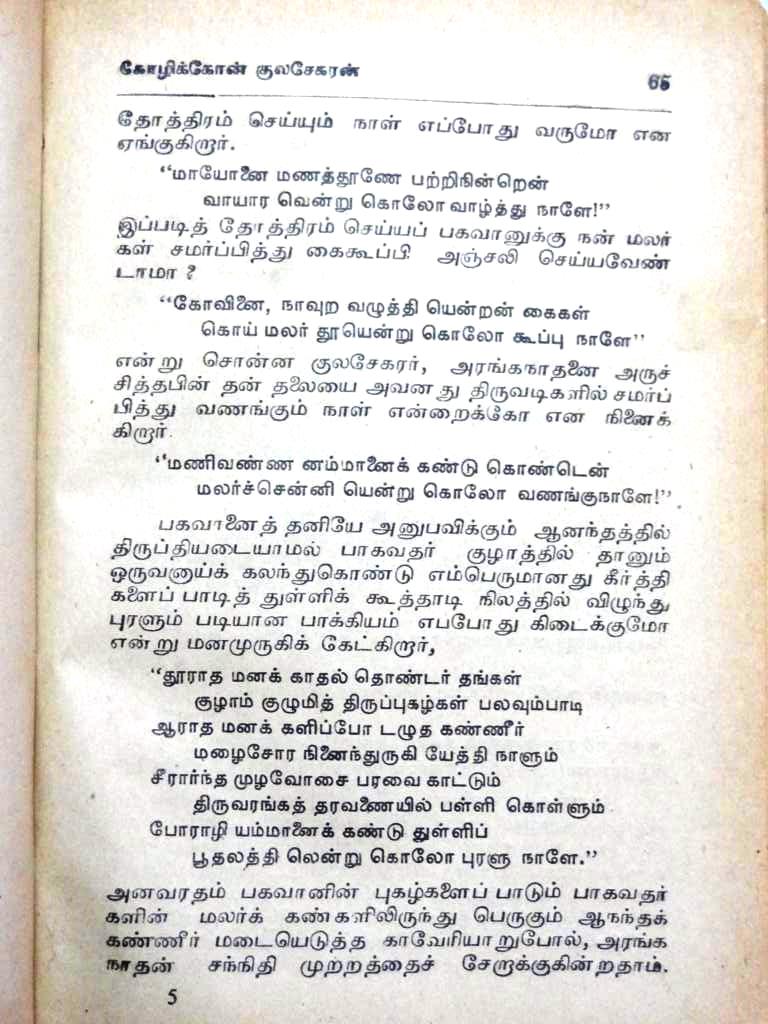 கோழிக்கோன் குலசேகரன் 65
தோத்திரம் செய்யும் நாள் எப்போது வருமோ என
ஏங்குகிறார்.
“மாயோனை மணத்தூணே பற்றிநின்றென்
வாயார வென்று கொலோ வாழ்த்து நாளே!”
இப்படித் தோத்திரம் செய்யப் பகவானுக்கு நன் மலர்
கள் சமர்ப்பித்து கைகூப்பி அஞ்சலி செய்யவேண்
டாமா ?
“கோவினை, நாவுற வழுத்தி யென்றன் கைகள்
கொய் மலர் தூயென்று கொலோ கூப்பு நாளே”
என்று சொன்ன குலசேகரர், அரங்கநாதனை அருச்
சித்தபின் தன் தலையை அவனது திருவடிகளில் சமர்ப்
பித்து வணங்கும் நாள் என்றைக்கோ என நினைக்
கிறார்.
“மணிவண்ண னம்மானைக் கண்டு கொண்டென்
மலர்ச்சென்னி யென்று கொலோ வணங்குநாளே!”
பகவானைத் தனியே அனுபவிக்கும் ஆனந்தத்தில்
திருப்தியடையாமல் பாகவதர் குழாத்தில் தானும்
ஒருவனாய்க் கலந்துகொண்டு எம்பெருமானது கீர்த்தி
களைப் பாடித் துள்ளிக் கூத்தாடி நிலத்தில் விழுந்து
புரளும் படியான பாக்கியம் எபபோது கிடைக்குமோ
என்று மனமுருகிக் கேட்கிறார்,
“தூராத மனக் காதல் தொண்டர் தங்கள்
குழாம் குழுமித் திருப்புகழ்கள் பலவும்பாடி
ஆராத மனக் களிப்போ டழுத கண்ணீர்
மழைசோர நினைந்துருகி யேத்தி நாளும்
சீரார்ந்த முழவோசை பரவை காட்டும்
திருவரங்கத் தரவணையில் பள்ளி கொள்ளும்
போராழி யம்மானைக் கண்டு துள்ளிப்
பூதலத்தி லென்று கொலோ புரளு நாளே.”
அனவரதம் பகவானின் புகழ்களைப் பாடும் பாகவதர்
களின் மலர்க் கண்களிலிருந்து பெருகும் ஆநந்தக்
கண்ணீர் மடையெடுத்த காவேரியாறுபோல், அரங்க
நாதன் சந்நிதி முற்றத்தைச் சேறாக்குகின்றதாம்.
5